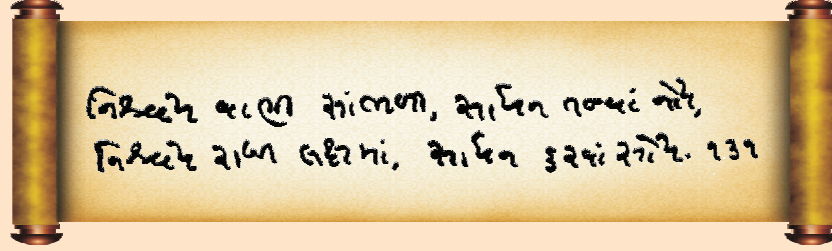 નિશ્ચય વાણી સાંભળી, સાધન તજવાં નોય,
નિશ્ચય રાખી લક્ષમાં, સાધન કરવાં સોય. ૧૩૧